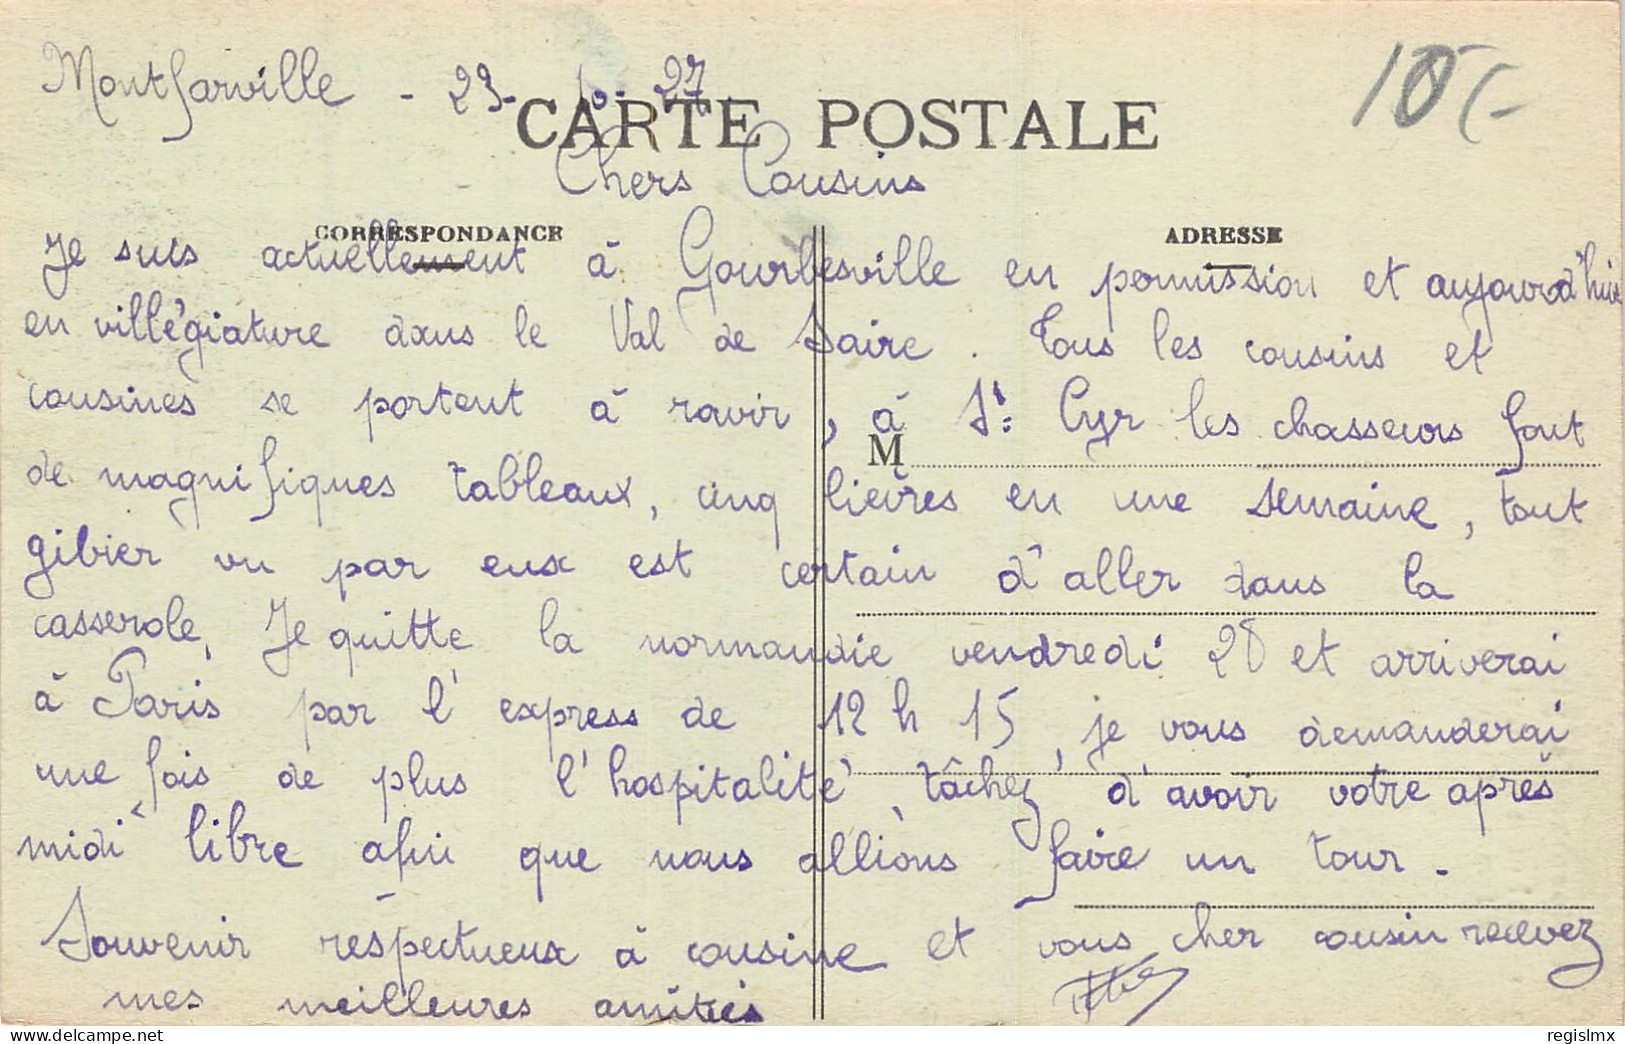 Montfarville - 23- 10- 27
10 -
CARTE POSTALE
Chers Cousins
CORRESPONDANCE
ADRESSE
Je suis actuellement à Gourbesville en permission et aujourd'hui
en villégiature dans le Val de Saire. Tous les cousins et
cousines se portent à ravir, à St: Cyr les chasseurs font
M
de magnifiques tableaux, cinq lièvres en une semaine, tout
gibier vu par eux est certain d'aller dans la
casserole, Je quitte la normandie vendredi 28 et arriverai
à Paris par l'express de 12 h 15, je vous demanderai
une fois de plus l'hospitalité, tâchez d'avoir votre après
midi libre afin que nous allions faire un tour.
Souvenir respectueux à cousine et vous cher cousin recevez
mes meilleures amitiés
regislmx